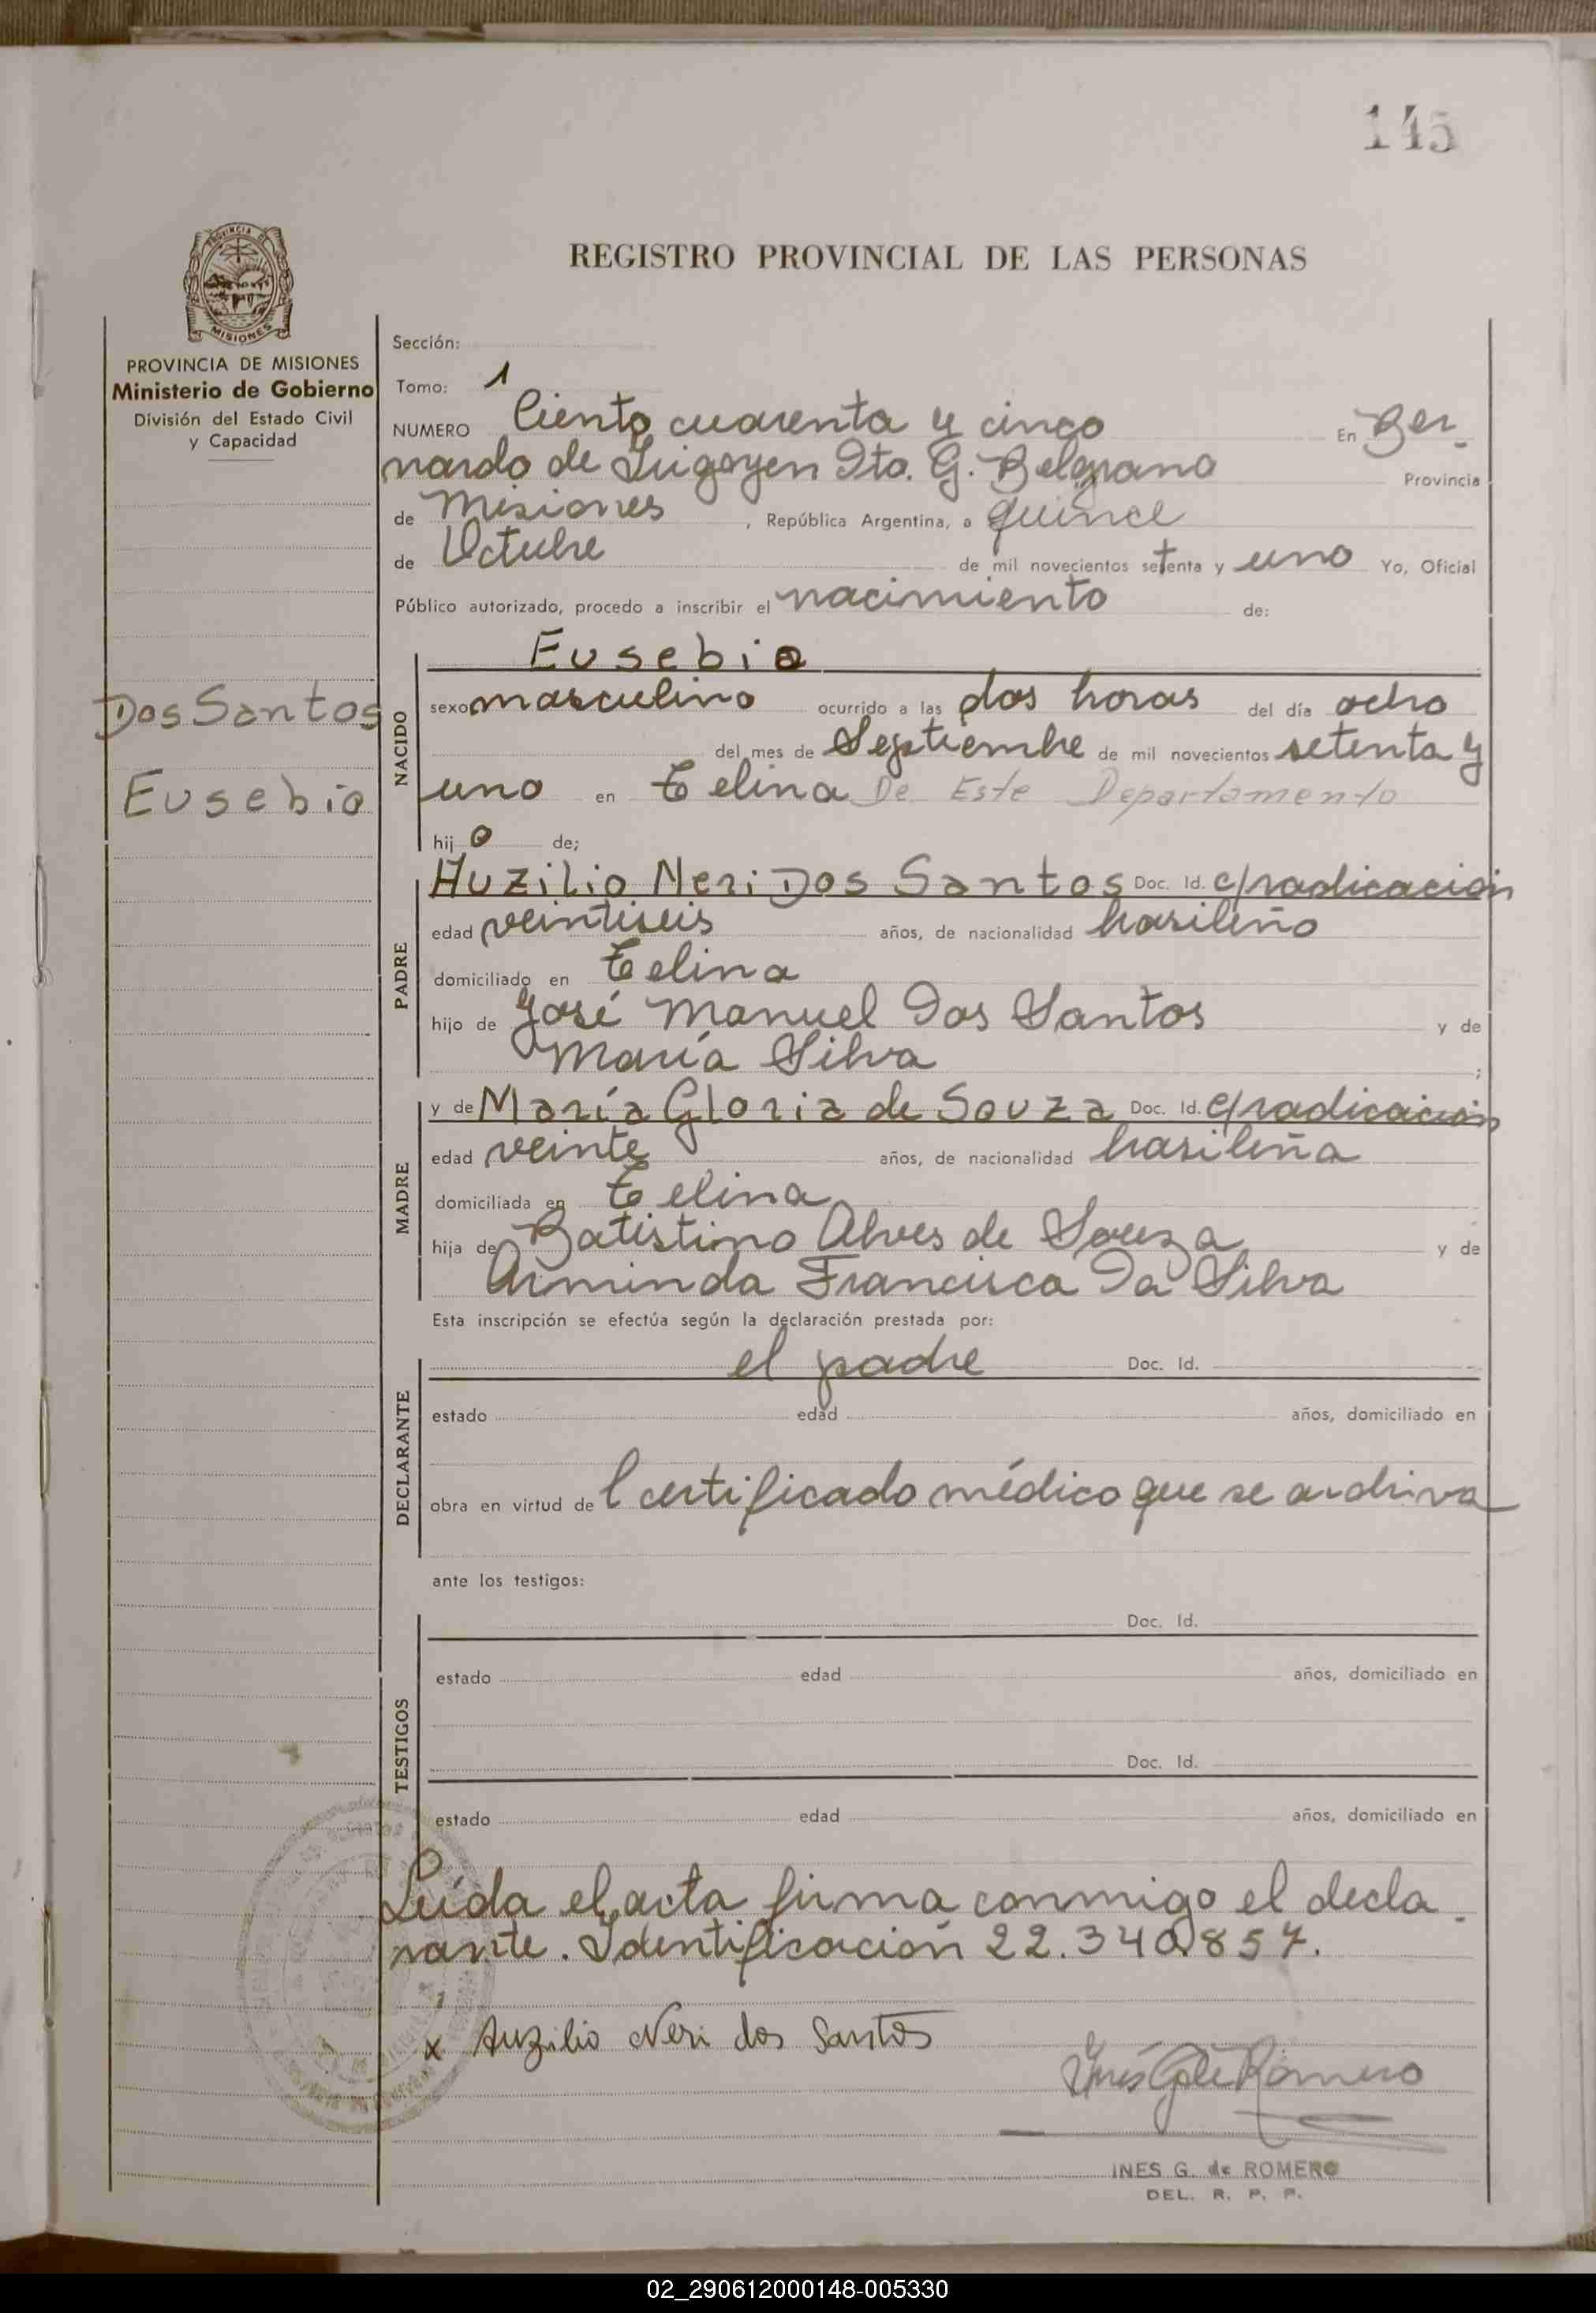 145
PROVINCIA DE
MISIONES
REGISTRO PROVINCIAL DE LAS PERSONAS
PROVINCIA DE MISIONES
Ministerio de Gobierno
División del Estado Civil
y Capacidad
Dos Santos
Eusebio
Sección:
Tomo: 1
NUMERO Ciento cuarenta y cinco En Ber-
nardo de Irigoyen Dto. G. Belgrano Provincia
de Misiones, República Argentina, a quince
de Octubre de mil novecientos setenta y uno Yo, Oficial
Público autorizado, procedo a inscribir el nacimiento de:
NACIDO
Eusebio
sexo masculino ocurrido a las dos horas del día ocho
del mes de Septiembre de mil novecientos setenta y
uno en Celina De Este Departamento
hijo de;
PADRE
Auzilio Neri Dos Santos Doc. Id. c/radicación
edad veintiseis años, de nacionalidad brasileño
domiciliado en Celina
hijo de José Manuel Dos Santos y de
María Silva ;
MADRE
y de María Gloria de Souza Doc. Id. c/radicación
edad veinte años, de nacionalidad brasileña
domiciliada en Celina
hija de Batistino Alves de Souza y de
Arminda Francisca Da Silva
Esta inscripción se efectúa según la declaración prestada por:
DECLARANTE
el padre Doc. Id.
estado edad años, domiciliado en
obra en virtud del certificado médico que se archiva
ante los testigos:
TESTIGOS
Doc. Id.
estado edad años, domiciliado en
Doc. Id.
estado edad años, domiciliado en
Leída el acta firma conmigo el decla-
rante. Identificación 22.340.857.
x Auzilio Neri dos Santos
Inés G de Romero
INES G. de ROMERO
DEL. R. P. P.
02_290612000148-005330